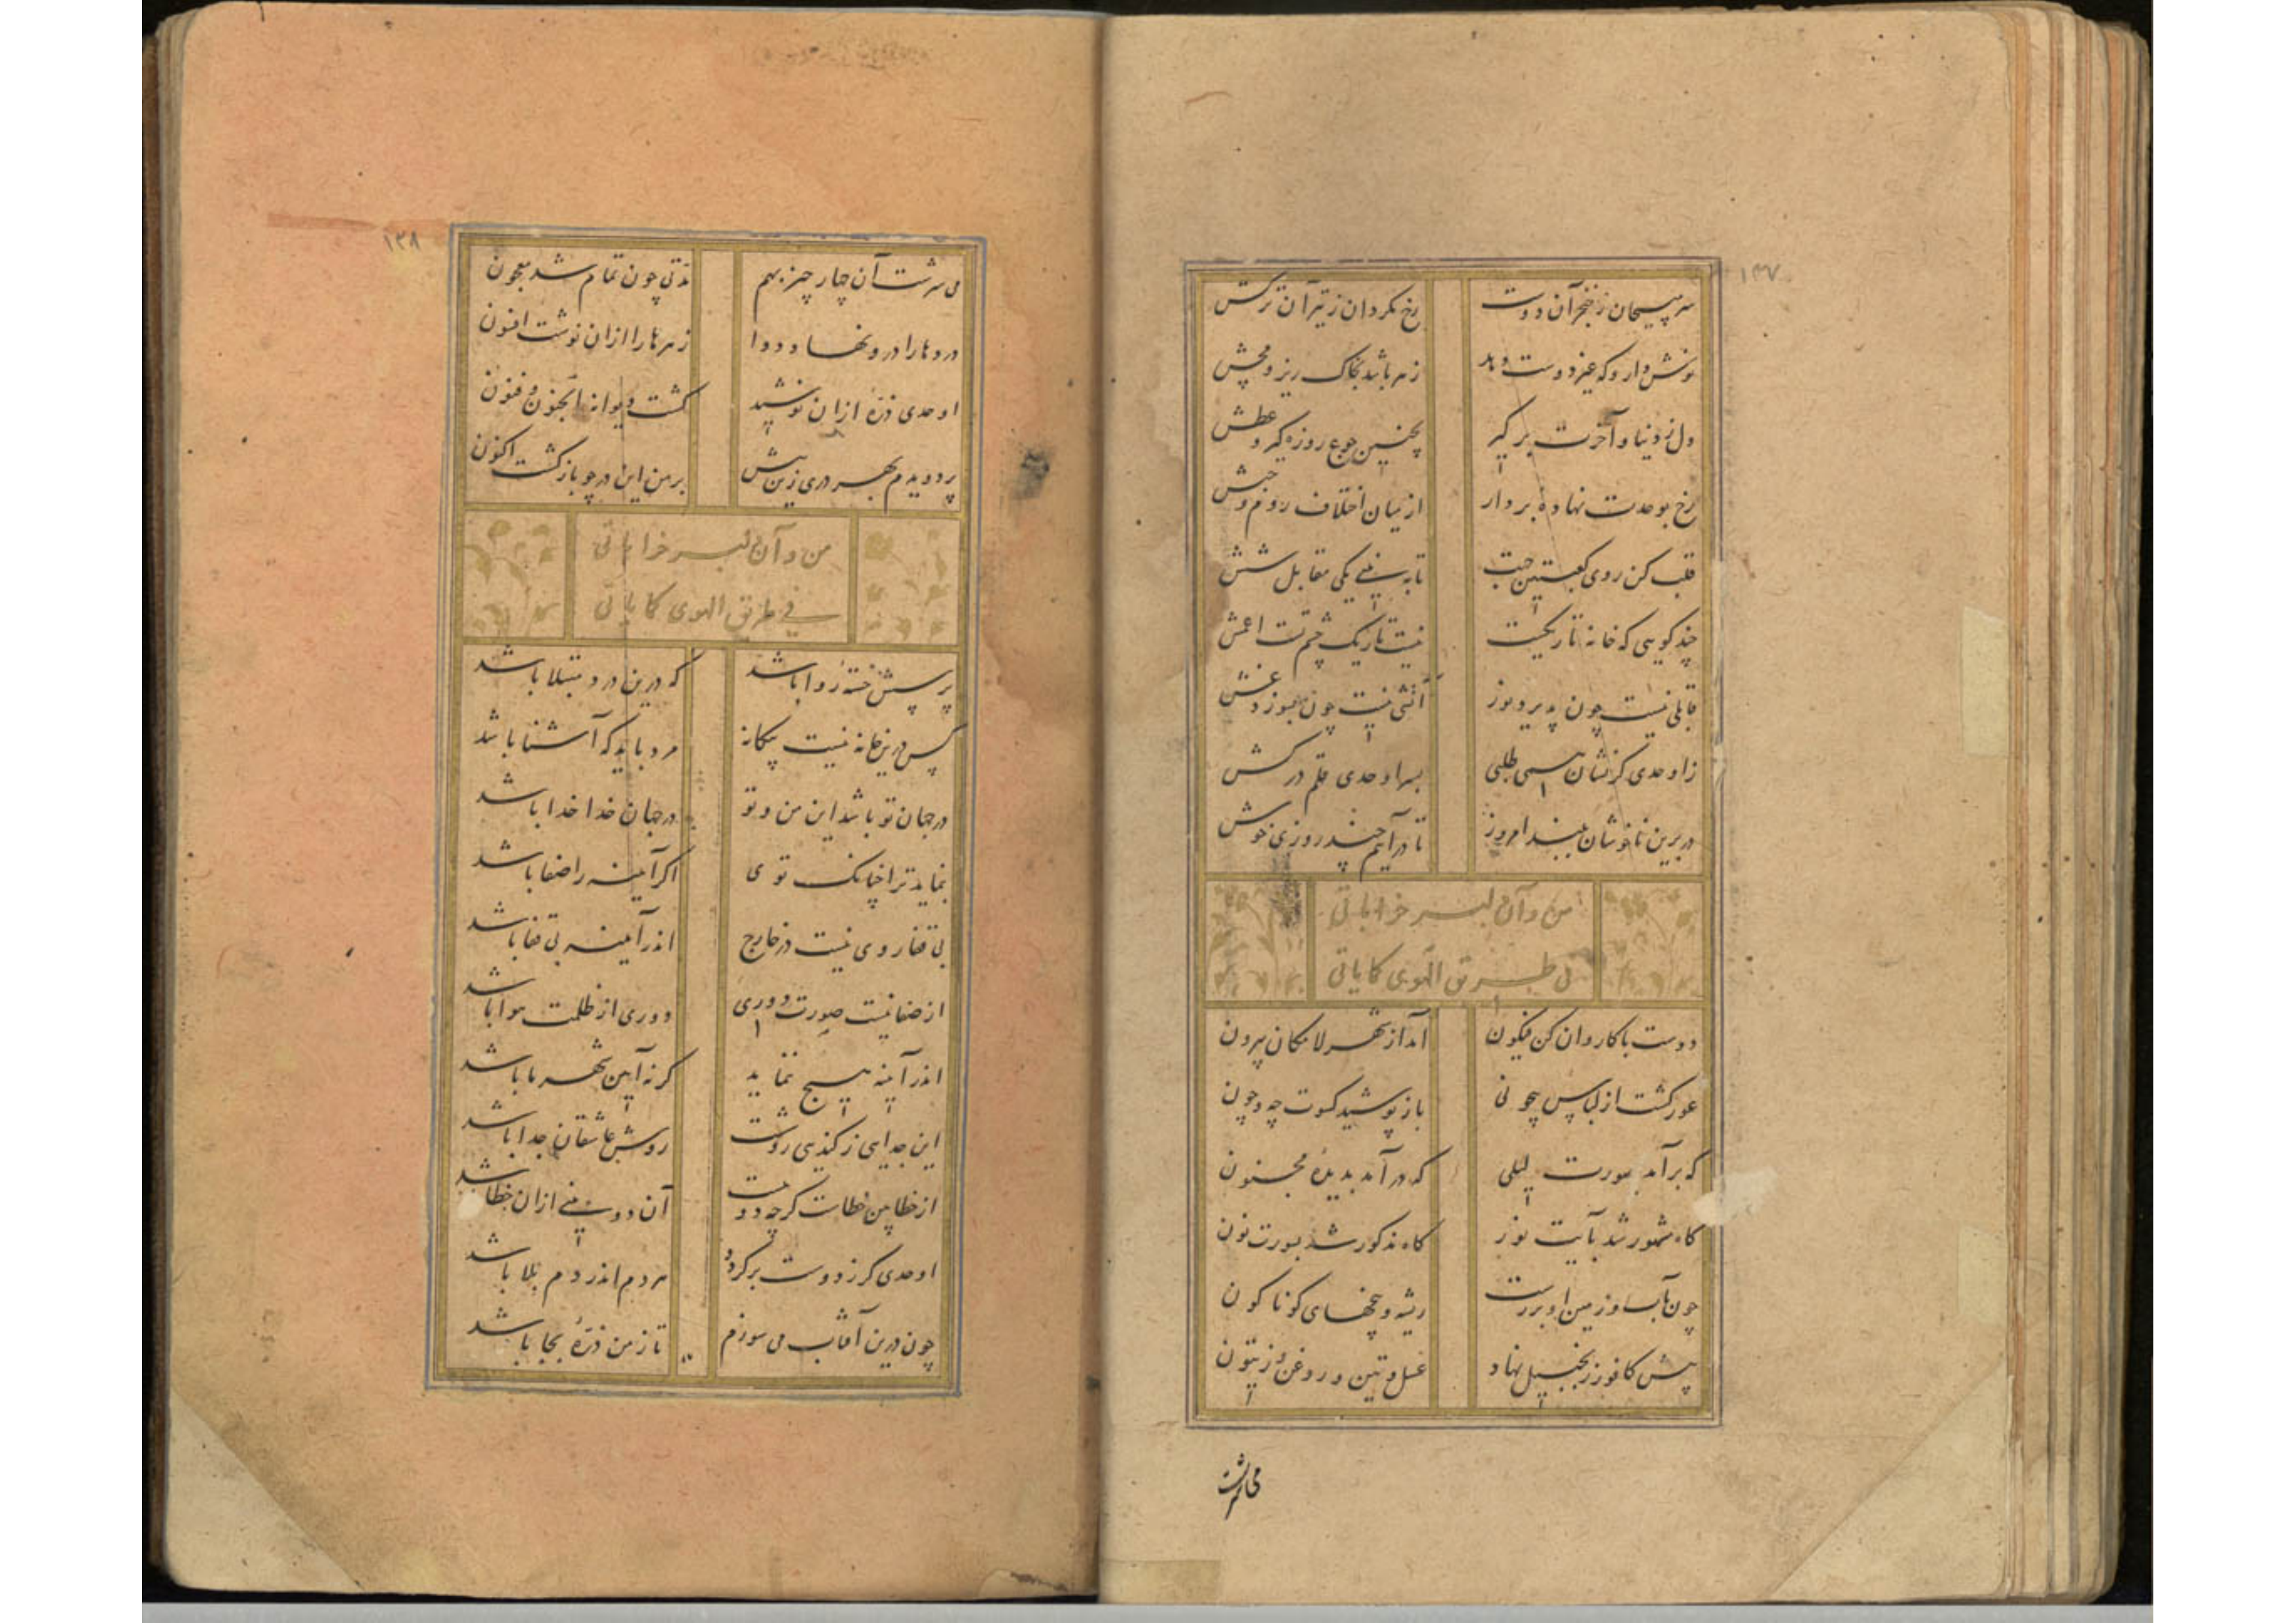 ۱۳۷
سر مپیچان ز خنجر آن دوست رخ مگردان ز تیر آن ترکش
نوش دارو که غیر دوست دهد زهر باشد بخاک ریز و مچش
دل ز دنیا و آخرت برگیر بچنین جوع روزه گیر و عطش
رخ بوحدت نهاده بردار از میان اختلاف روم و حبش
قلب کن روی کعبتین جهت تا به بینی یکی مقابل شش
چند گویی که خانه تاریکیست نیست تاریک چشم تست اعمش
قابلی نیست چون پدیرد نور آتشی نیست چون بسوزد غش
ز اوحدی گر نشان همی طلبی بسر اوحدی قلم درکش
در برین ناخوشان ببند امروز تا درآییم چند روزی خوش
من و آن دلبر خراباتی
فی طریق الهوی کمایاتی
دوست با کاروان کن فیکون آمد از شهر لامکان بیرون
عور گشت از لباس بیچونی باز پوشید کسوت چه و چون
گه برآمد بصورت لیلی گه درآمد بدیده مجنون
گاه مشهور شد بآیت نور گاه مذکور شد بسورت نون
چون بآب و زمین او بررست ریشه و بیخهای گوناگون
پیش کافور زنجبیل نهاد عسل و تین و روغن زیتون
می سرشت
۱۳۸
می سرشت آن چار چیز بهم مدتی چون تمام شد معجون
دردها را درو نهاد دوا زهرها را ازان نوشت افسون
اوحدی ذرهٔ ازان نوشید گشت دیوانه الجنون فنون
پر دویدم بهر دری زین پیش بر من این در چو باز گشت اکنون
من و آن دلبر خراباتی
فی طریق الهوی کمایاتی
پرسش خسته روا باشد که درین درد مبتلا باشد
کس درین خانه نیست بیگانه مرد باید که آشنا باشد
در جهان تو باشد این من و تو در جهان خدا خدا باشد
بنماید ترا چنانک توی اگر آیینه را صفا باشد
بی قفا روی نیست در خارج اندر آیینه بی قفا باشد
از صفا نیست صورت دوری دوری از ظلمت هوا باشد
اندر آیینه هیچ ننماید گرنه آیین شهر ما باشد
این جدایی ز کندی روشت روش عاشقان جدا باشد
از خطا بین خطاست گرچه دوست آن دو بینی ازان خطا باشد
اوحدی گر ز دوست برگردد هردم اندر دم بلا باشد
چون درین آفتاب می سوزم تا ز من ذرهٔ بجا باشد